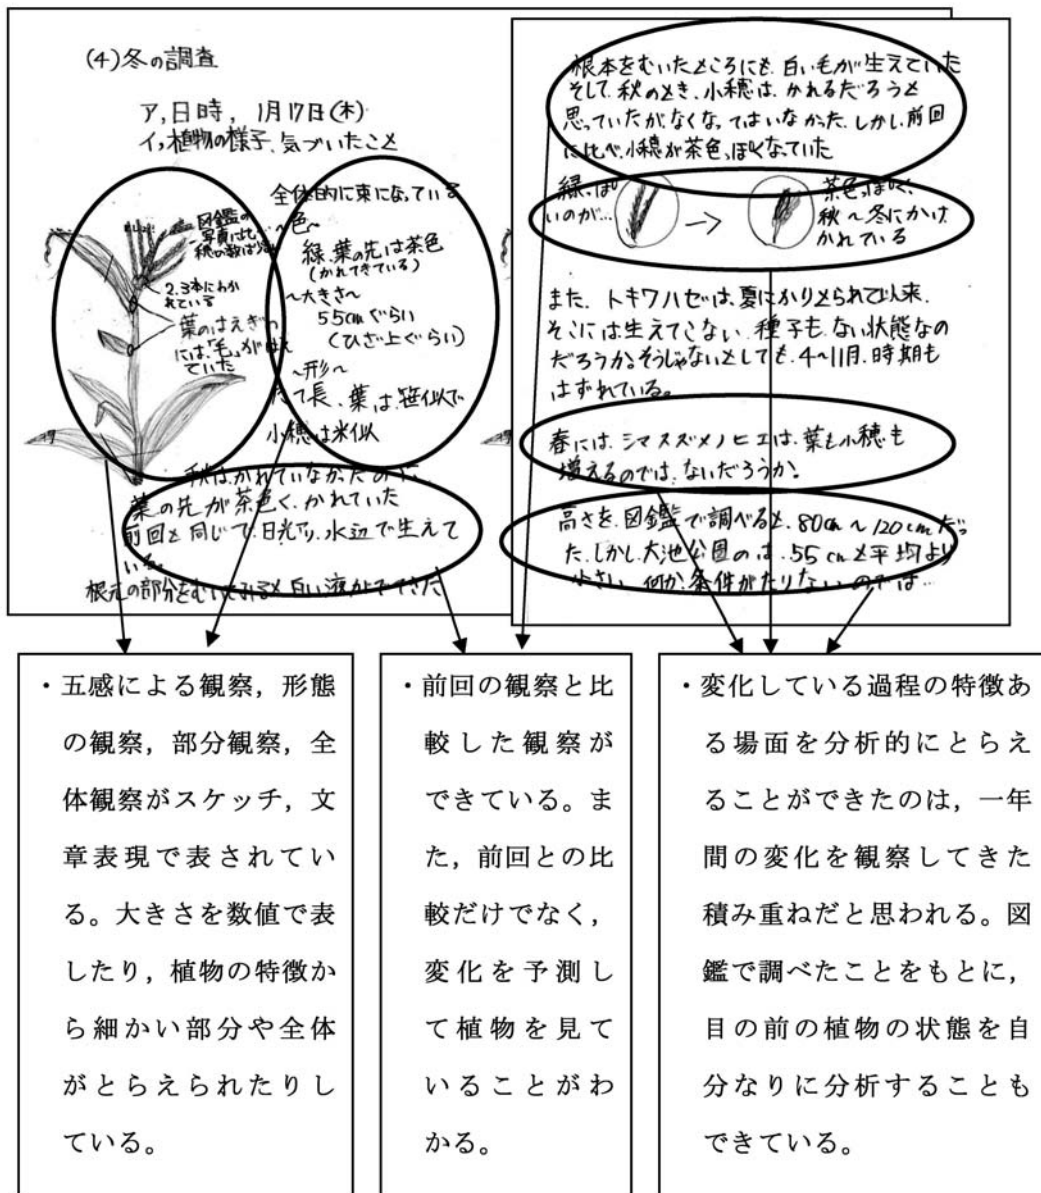 (4)冬の調査
ア,日時, 1月17日(木)
イ,植物の様子,気づいたこと
図鑑の
写真に比べ
穂の数は
2.3本にわか
れている
葉のはえぎわ
には、「毛」がはえ
ていた
全体的に束になっている
〜色〜
緑.葉の先は茶色
(かれてきている)
〜大きさ〜
55cmぐらい
(ひざ上ぐらい)
〜形〜
たて長、葉は笹似で
小穂は米似
秋はかれていなかったのに、
葉の先が茶色く、かれていた
前回と同じで、日光アリ、水辺で生えて
いる。
根元の部分をむいてみると白い液がでてきた
根本をむいたところにも、白い毛が生えていた
そして、秋のとき、小穂は、かれるだろうと
思っていたが、なくなってはいなかった。しかし、前回
に比べ、小穂が茶色っぽくなっていた
緑っぽ
いのが…
→
茶色っぽく、
秋〜冬にかけ
かれている
また、トキワハゼは、夏にかりとられて以来、
そこには生えてこない、種子も、ない状態なの
だろうか。そうじゃないとしても、4〜11月、時期も
はずれている。
春には、シマスズメノヒエは、葉も小穂も
増えるのでは、ないだろうか。
高さを、図鑑で調べると、80cm〜120cmだっ
た。しかし、大池公園のは、55cmと平均より
小さい、何か、条件がたりないのでは…
・五感による観察,形態
の観察,部分観察,全
体観察がスケッチ,文
章表現で表されてい
る。大きさを数値で表
したり,植物の特徴か
ら細かい部分や全体
がとらえられたりし
ている。
・前回の観察と比
較した観察が
できている。ま
た,前回との比
較だけでなく,
変化を予測し
て植物を見て
いることがわ
かる。
・変化している過程の特徴あ
る場面を分析的にとらえ
ることができたのは,一年
間の変化を観察してきた
積み重ねだと思われる。図
鑑で調べたことをもとに,
目の前の植物の状態を自
分なりに分析することも
できている。